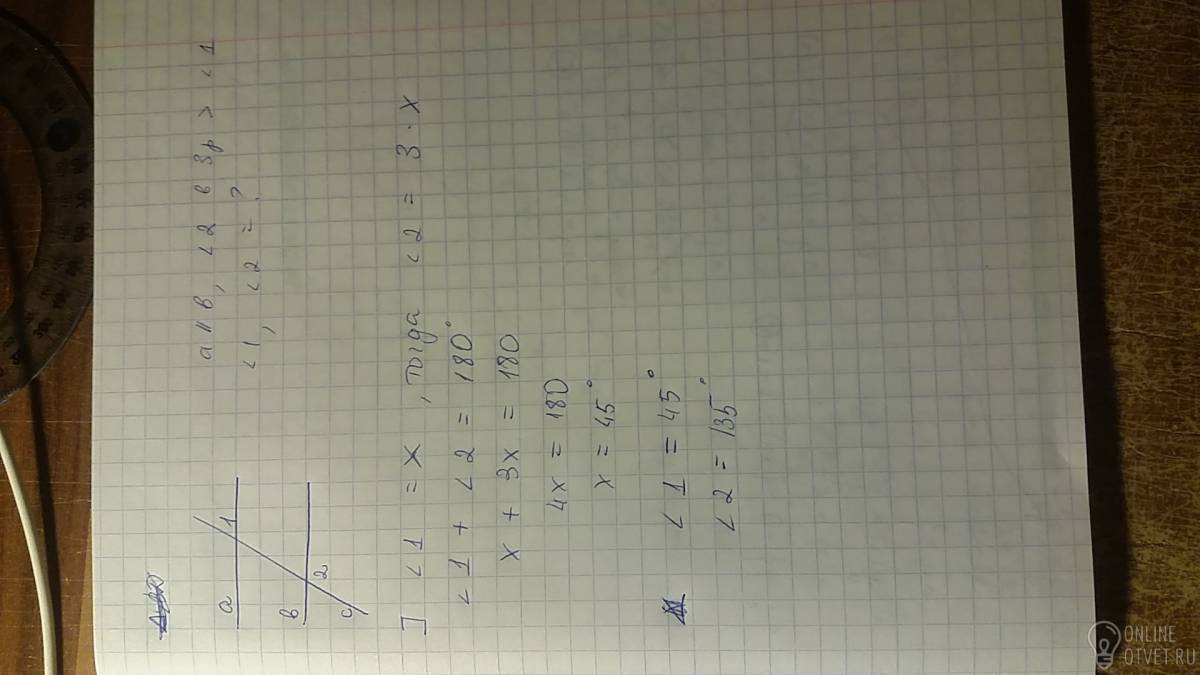 a
1
в
2
c
a ∥ в, <2 в 3р > <1
<1, <2 = ?
] <1 = x, тогда <2 = 3 · x
<1 + <2 = 180°
x + 3x = 180
4x = 180
x = 45°
<1 = 45°
<2 = 135°
ONLINE
OTVET.RU